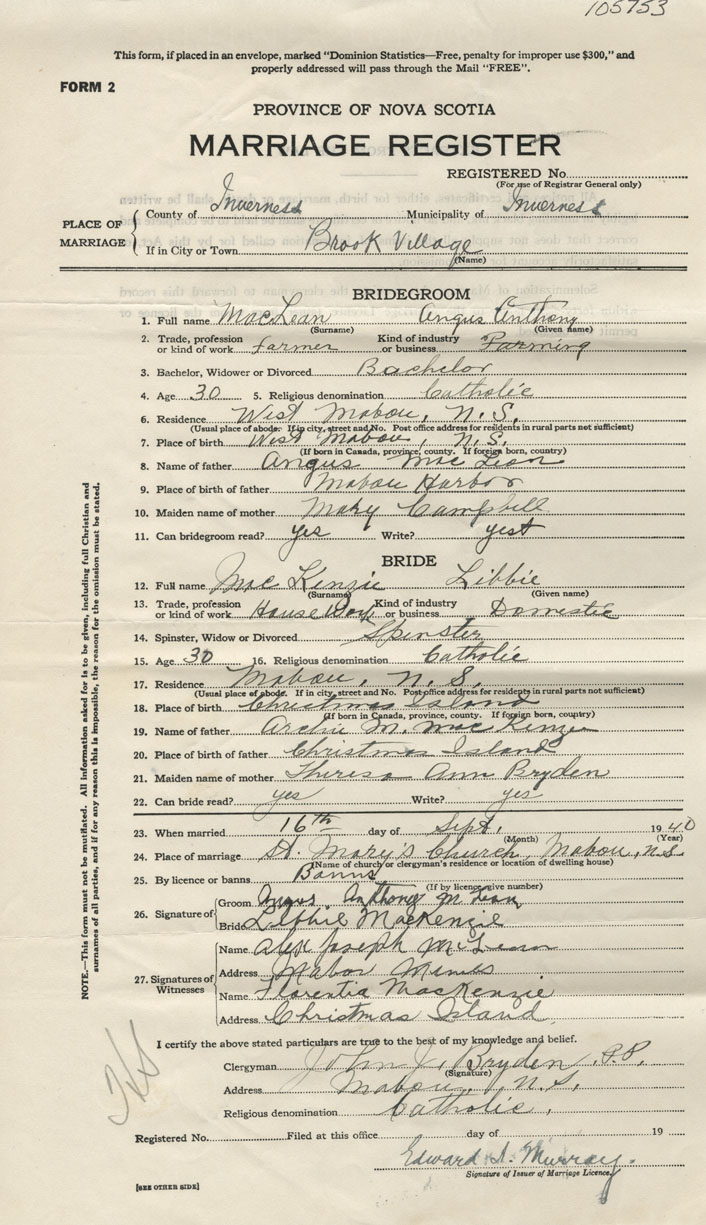 105753
This form, if placed in an envelope, marked "Dominion Statistics—Free, penalty for improper use $300," and
properly addressed will pass through the Mail "FREE".
FORM 2
PROVINCE OF NOVA SCOTIA
MARRIAGE REGISTER
REGISTERED No.
(For use of Registrar General only)
PLACE OF MARRIAGE
County of Inverness Municipality of Inverness
If in City or Town Brook Village
(Name)
BRIDEGROOM
1. Full name MacLean Angus Anthony
(Surname) (Given name)
2. Trade, profession or kind of work Farmer Kind of industry or business Farming
3. Bachelor, Widower or Divorced Bachelor
4. Age 30 5. Religious denomination Catholic
6. Residence West Mabou, N.S.
(Usual place of abode. If in city, street and No. Post office address for residents in rural parts not sufficient)
7. Place of birth West Mabou, N.S.
(If born in Canada, province, county. If foreign born, country)
8. Name of father Angus MacLean
9. Place of birth of father Mabou Harbor
10. Maiden name of mother Mary Campbell
11. Can bridegroom read? yes Write? yes
BRIDE
12. Full name MacKenzie Libbie
(Surname) (Given name)
13. Trade, profession or kind of work House Kind of industry or business Domestic
14. Spinster, Widow or Divorced Spinster
15. Age 30 16. Religious denomination Catholic
17. Residence Mabou, N.S.
(Usual place of abode. If in city, street and No. Post office address for residents in rural parts not sufficient)
18. Place of birth Christmas Island
(If born in Canada, province, county. If foreign born, country)
19. Name of father Archie M. MacKenzie
20. Place of birth of father Christmas Island
21. Maiden name of mother Theresa Ann Bryden
22. Can bride read? yes Write? yes
23. When married 16th day of Sept. 1940
(Month) (Year)
24. Place of marriage St. Mary's Church, Mabou, N.S.
(Name of church or clergyman's residence or location of dwelling house)
25. By licence or banns Banns
(If by licence give number)
26. Signature of
Groom Angus Anthony McLean
Bride Libbie MacKenzie
27. Signatures of Witnesses
Name Alex Joseph McLean
Address Mabou Mines
Name Florentia MacKenzie
Address Christmas Island
I certify the above stated particulars are true to the best of my knowledge and belief.
Clergyman John J. Bryden P.P.
(Signature)
Address Mabou, N.S.
Religious denomination Catholic.
Registered No. Filed at this office day of 19
Edward A. Murray.
Signature of Issuer of Marriage Licence.
[SEE OTHER SIDE]
NOTE.—This form must not be mutilated. All information asked for is to be given, including full Christian and
surnames of all parties, and if for any reason this is impossible, the reason for the omission must be stated.